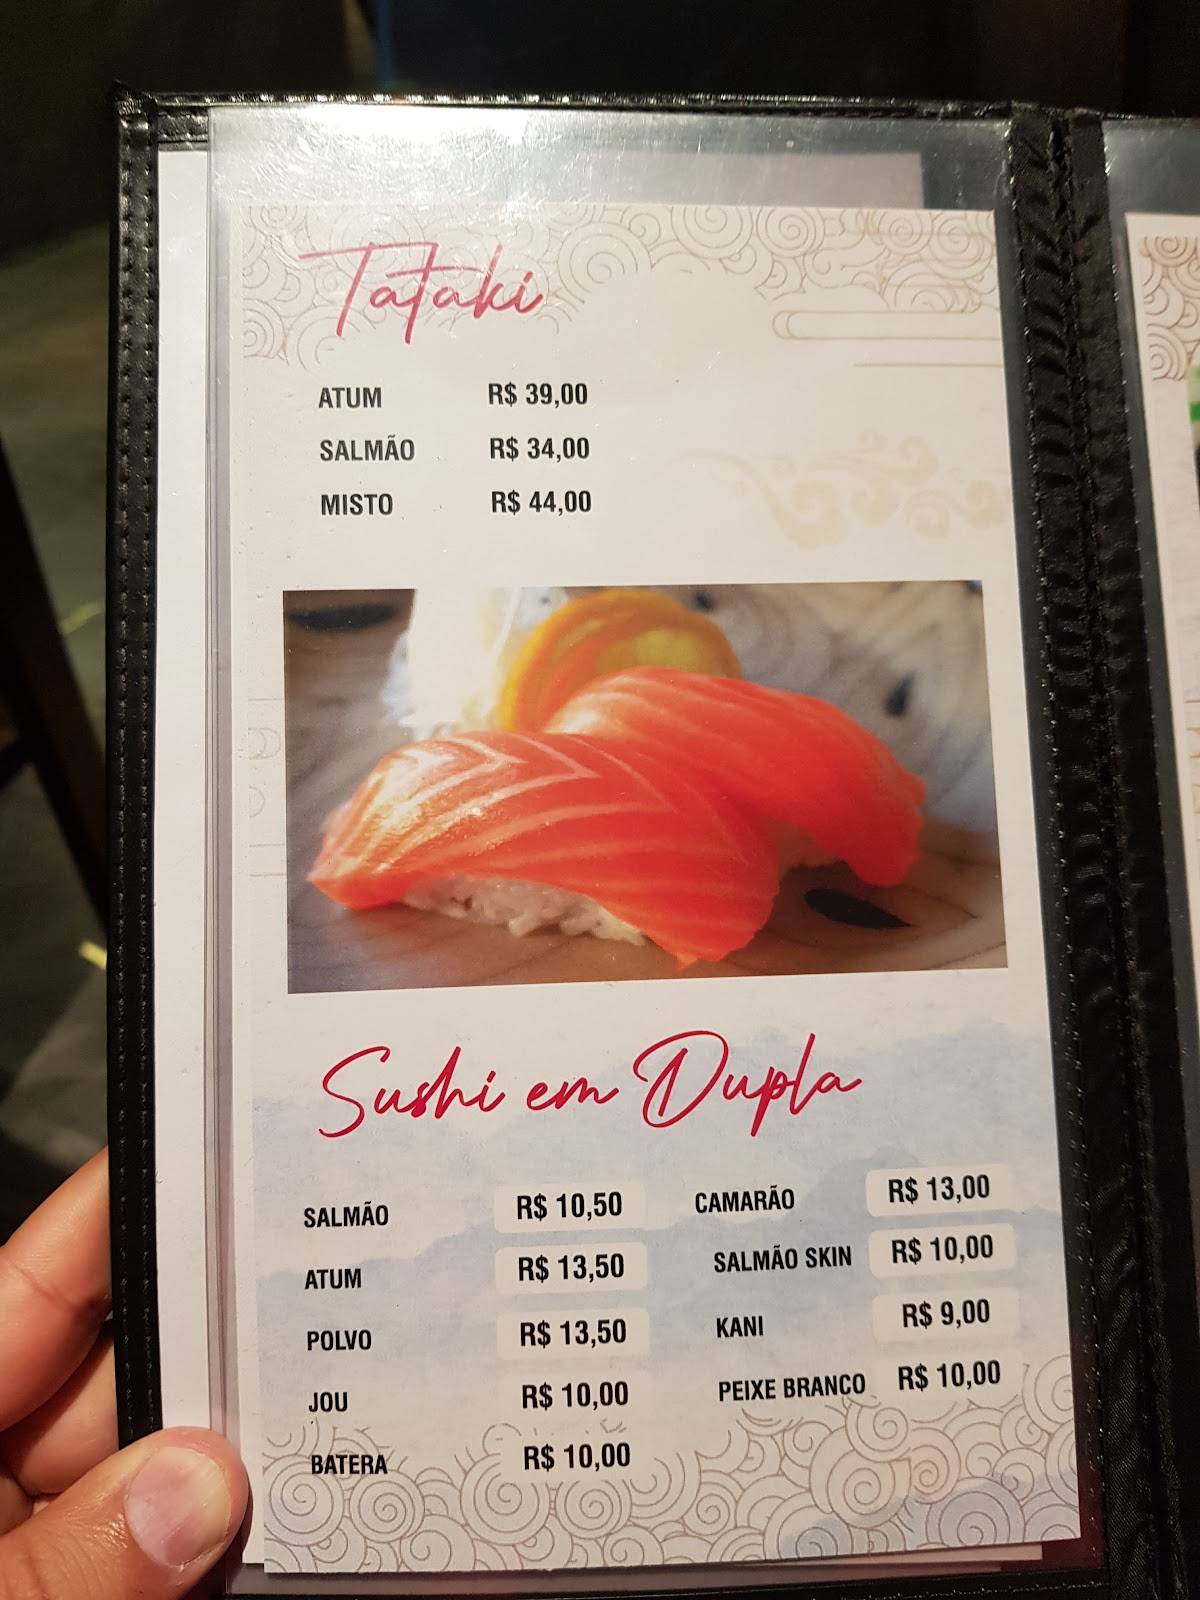 Tataki
ATUM R$ 39,00
SALMÃO R$ 34,00
MISTO R$ 44,00
Sushi em Dupla
SALMÃO R$ 10,50
ATUM R$ 13,50
POLVO R$ 13,50
JOU R$ 10,00
BATERA R$ 10,00
CAMARÃO R$ 13,00
SALMÃO SKIN R$ 10,00
KANI R$ 9,00
PEIXE BRANCO R$ 10,00